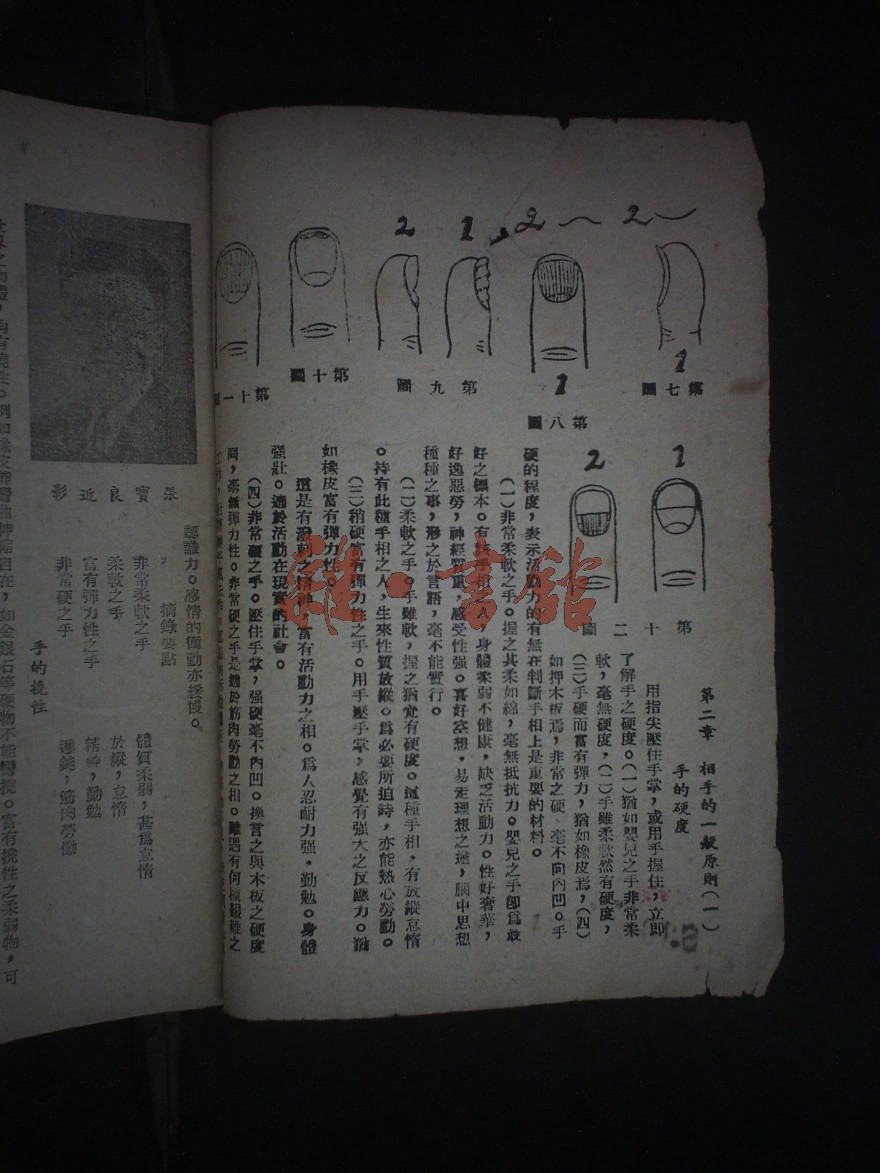 2
1
2
2
1
1
第七圖
第八圖
第九圖
第十圖
第十一圖
1
2
第十二圖
第二章 相手的一般原則(一)
手的硬度
用指尖壓住手掌,或用手握住,立即
了解手之硬度。(一)猶如嬰兒之手非常柔
軟,毫無硬度,(二)手雖柔軟然有硬度,
(三)手硬而富有彈力,猶如橡皮焉,(四)
如押木板焉,非常之硬、毫不向內凹。手
硬的程度,表示活動力的有無在判斷手相上是重要的材料。
(一)非常柔軟之手。握之其柔如綿,毫無抵抗力。嬰兒之手卽爲最
好之標本。有該手相之人,身體柔弱不健康,缺乏活動力。性好奢華,
好逸惡勞,神經質重,感受性强。喜好空想,易走理想之途,腦中思想
種種之事,形之於言語,毫不能實行。
(二)柔軟之手。手雖軟,握之猶覺有硬度。這種手相,有放縱怠惰
。持有此種手相之人,生來性質放縱。爲必要所迫時,亦能熱心勞動。
(三)稍硬富有彈力性之手。用手壓手掌,感覺有强大之反應力。猶
如橡皮富有彈力性。
這是有潑剌之精神,富有活動力之相。爲人忍耐力强,勤勉。身體
强壯。適於活動在現實的社會。
(四)非常硬之手。壓住手掌,强硬毫不內凹。換言之與木板之硬度
同,毫無彈力性。非常硬之手是適於筋肉勞動之相。雖遇有何種艱難之
認識力。感情的衝動亦緩慢。
摘錄要點
非常柔軟之手 體質柔弱,甚爲怠惰
柔軟之手 放縱,怠惰
富有彈力性之手 精神,勤勉
非常硬之手 遲鈍,筋肉勞働
手的撓性
張寶良近影
物體,自有撓性。例如橡皮靠彎曲伸縮自在,如金銀石等硬物不能彎撓。富有撓性之柔弱物,可
雜·書館